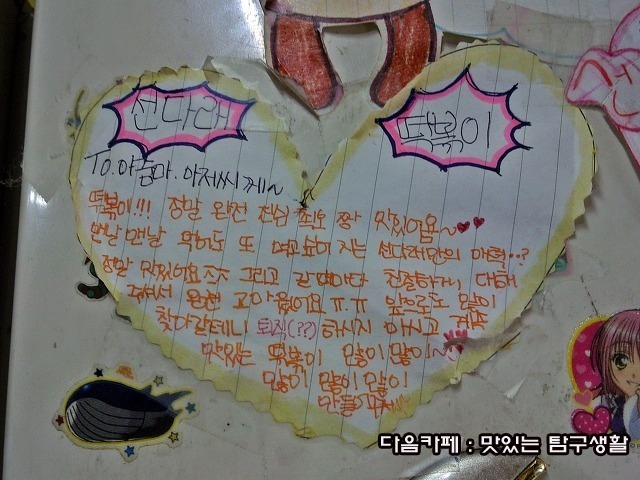 선다래 떡볶이
To.아줌마.아저씨 께~
떡볶이!!! 정말 완전 진심 최고 짱 맛있어욤~♥♥
맨날 맨날 먹어도 또 먹고싶어 지는 선다래만의 매력..?
정말 맛있어요ㅈㅈ 그리고 갈때마다 친절하게 대해
주셔서 완전 고마웠어요 ㅠ.ㅠ 앞으로도 많이
찾아갈테니 퇴직(??) 하시지 마시고 계속
맛있는 떡볶이 많이많이~
많이 많이많이
만들
다음카페 : 맛있는 탐구생활